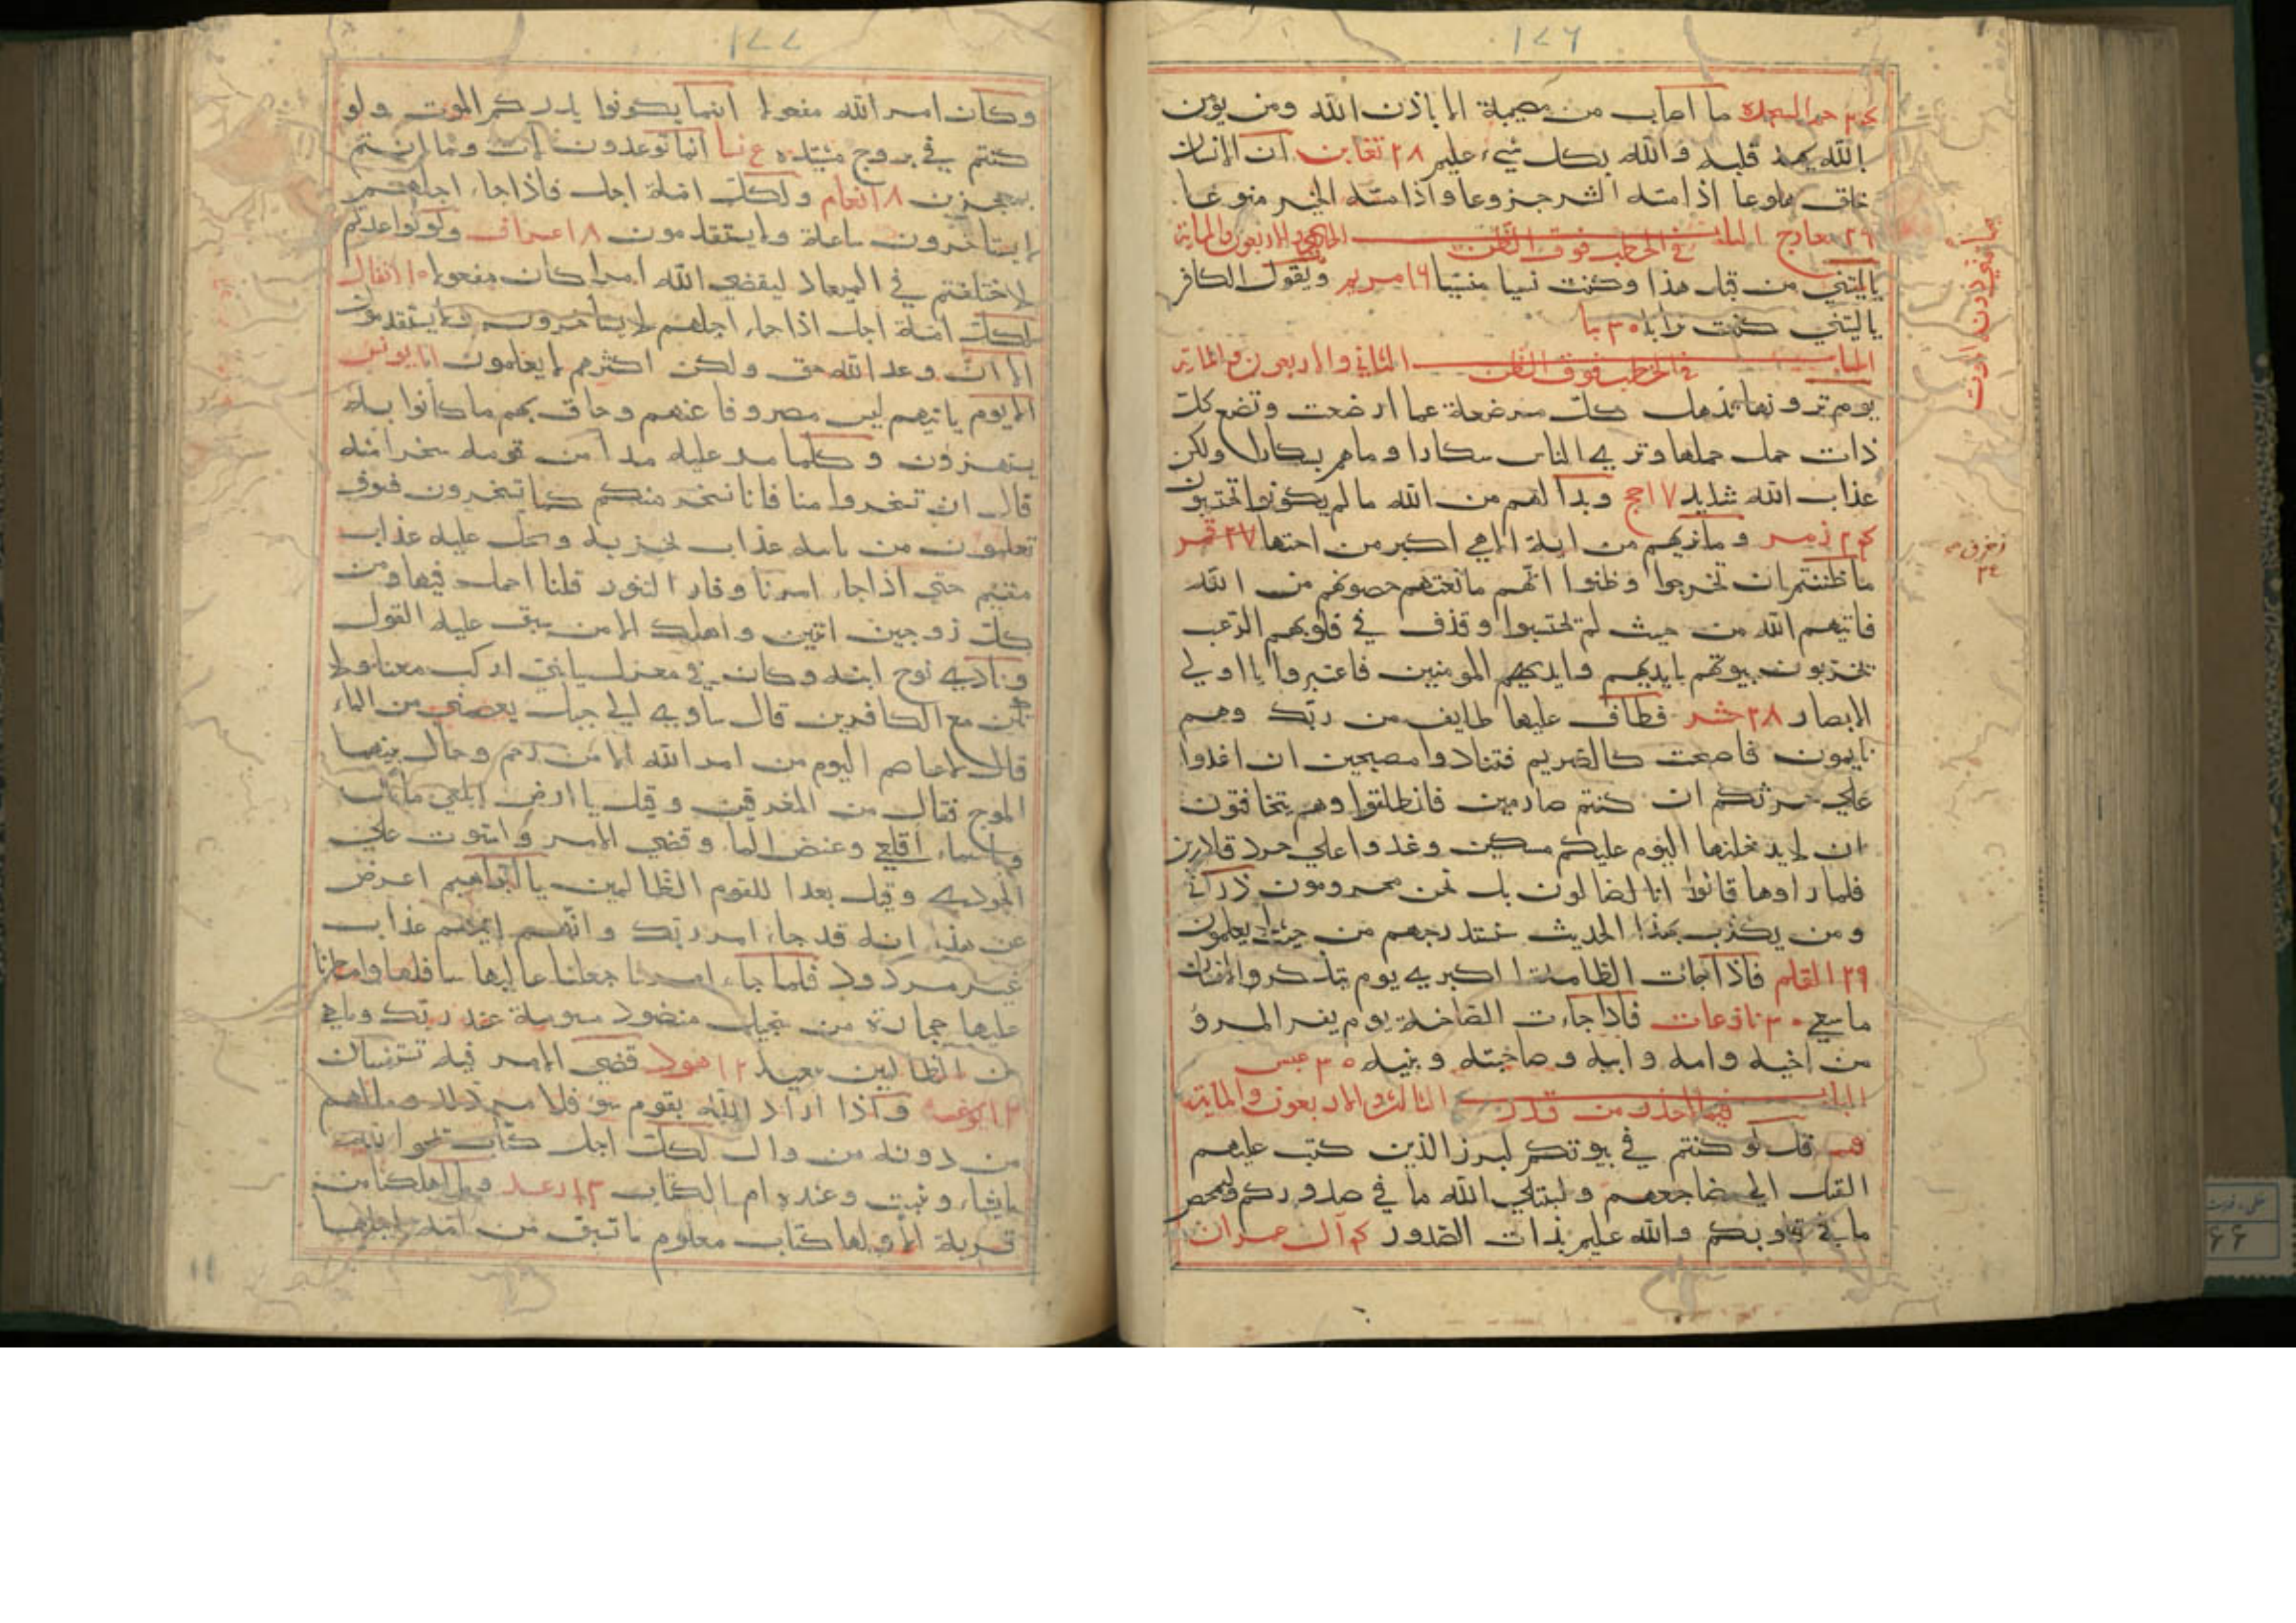 ١٧٦
٢٤ حم السجدة ما اصاب من مصيبة الا باذن الله ومن يؤمن
بالله يهد قلبه والله بكل شيء عليم ٢٨ تغابن ان الانسان
خلق هلوعا اذا مسه الشر جزوعا واذا مسه الخير منوعا
٢٩ معارج الباب الحادي والاربعون والماية
في الخطب فوق الظن
ياليتني من قبل هذا وكنت نسيا منسيا ١٦ مريم ويقول الكافر
ياليتني كنت ترابا ٣٠ نبا
الباب في الخطب فوق الظن الثاني والاربعون والماية
يوم ترونها تذهل كل مرضعة عما ارضعت وتضع كل
ذات حمل حملها وتري الناس سكارا وما هم بسكارا ولكن
عذاب الله شديد ١٧ حج وبدا لهم من الله ما لم يكونوا يحتسبون
٢٤ زمر وما نريهم من اية الا هي اكبر من اختها ٢٧ قمر
ما ظننتم ان يخرجوا وظنوا انهم مانعتهم حصونهم من الله
فاتيهم الله من حيث لم يحتسبوا وقذف في قلوبهم الرعب
يخربون بيوتهم بايديهم وايدي المومنين فاعتبروا يا اولي
الابصار ٢٨ حشر فطاف عليها طايف من ربك وهم
نايمون فاصبحت كالصريم فتنادوا مصبحين ان اغدوا
علي حرثكم ان كنتم صارمين فانطلقوا وهم يتخافتون
ان لا يدخلنها اليوم عليكم مسكين وغدوا علي حرد قادرين
فلما راوها قالوا انا لضالون بل نحن محرومون ذرني
ومن يكذب بهذا الحديث سنستدرجهم من حيث لا يعلمون
٢٩ القلم فاذا جات الطامت اكبري يوم يتذكر والانسان
ما سعي ٣٠ نازعات فاذا جاءت الصاخة يوم يفر المرؤ
من اخيه وامه وابيه وصاحبته وبنيه ٣٠ عبس
الباب فيما لا حذر من قدر الثالث والاربعون والماية
قل لو كنتم في بيوتكم لبرز الذين كتب عليهم
القتل الي مضاجعهم وليبتلي الله ما في صدوركم وليمحص
ما في قلوبكم والله عليم بذات الصدور ٤ آل عمران
زخرف
١٧٧
وكان امر الله مفعولا اينما يكونوا يدرككم الموت ولو
كنتم في بروج مشيده ٤ نسا انما توعدون لات وما انتم
بمعجزين ٨ انعام ولكل امة اجل فاذا جاء اجلهم
لا يستاخرون ساعة ولا يستقدمون ٨ اعراف ولو تواعدتم
لاختلفتم في الميعاد ليقضي الله امرا كان مفعولا ١٠ انفال
لكل امة اجل اذا جاء اجلهم لا يستاخرون ولا يستقدمون
الا ان وعد الله حق ولكن اكثرهم لا يعلمون ١١ يونس
الا يوم ياتيهم ليس مصروفا عنهم وحاق بهم ما كانوا به
يستهزؤن وكلما مر عليه ملا من قومه سخروا منه
قال ان تسخروا منا فانا نسخر منكم كما تسخرون فسوف
تعلمون من ياتيه عذاب يخزيه ويحل عليه عذاب
مقيم حتي اذا جاء امرنا وفار التنور قلنا احمل فيها من
كل زوجين اثنين واهلك الا من سبق عليه القول
ونادي نوح ابنه وكان في معزل يابني اركب معنا ولا
تكن مع الكافرين قال ساوي الي جبل يعصمني من الماء
قال لا عاصم اليوم من امر الله الا من رحم وحال بينهما
الموج فكان من المغرقين وقيل يا ارض ابلعي مائك
وياسماء اقلعي وغيض الماء وقضي الامر واستوت علي
الجودي وقيل بعدا للقوم الظالمين يا ابراهيم اعرض
عن هذا انه قد جاء امر ربك وانهم اتيهم عذاب
غير مردود فلما جاء امرنا جعلنا عاليها سافلها وامطرنا
عليها حجارة من سجيل منضود مسومة عند ربك وما هي
من الظالمين ببعيد ١٢ هود قضي الامر فيه تستفتيان
١٢ يوسف واذا اراد الله بقوم سوء فلا مرد له وما لهم
من دونه من وال لكل اجل كتاب يمحوا الله
ما يشاء ويثبت وعنده ام الكتاب ١٣ رعد وما اهلكنا من
قرية الا ولها كتاب معلوم ما تسبق من امة اجلها